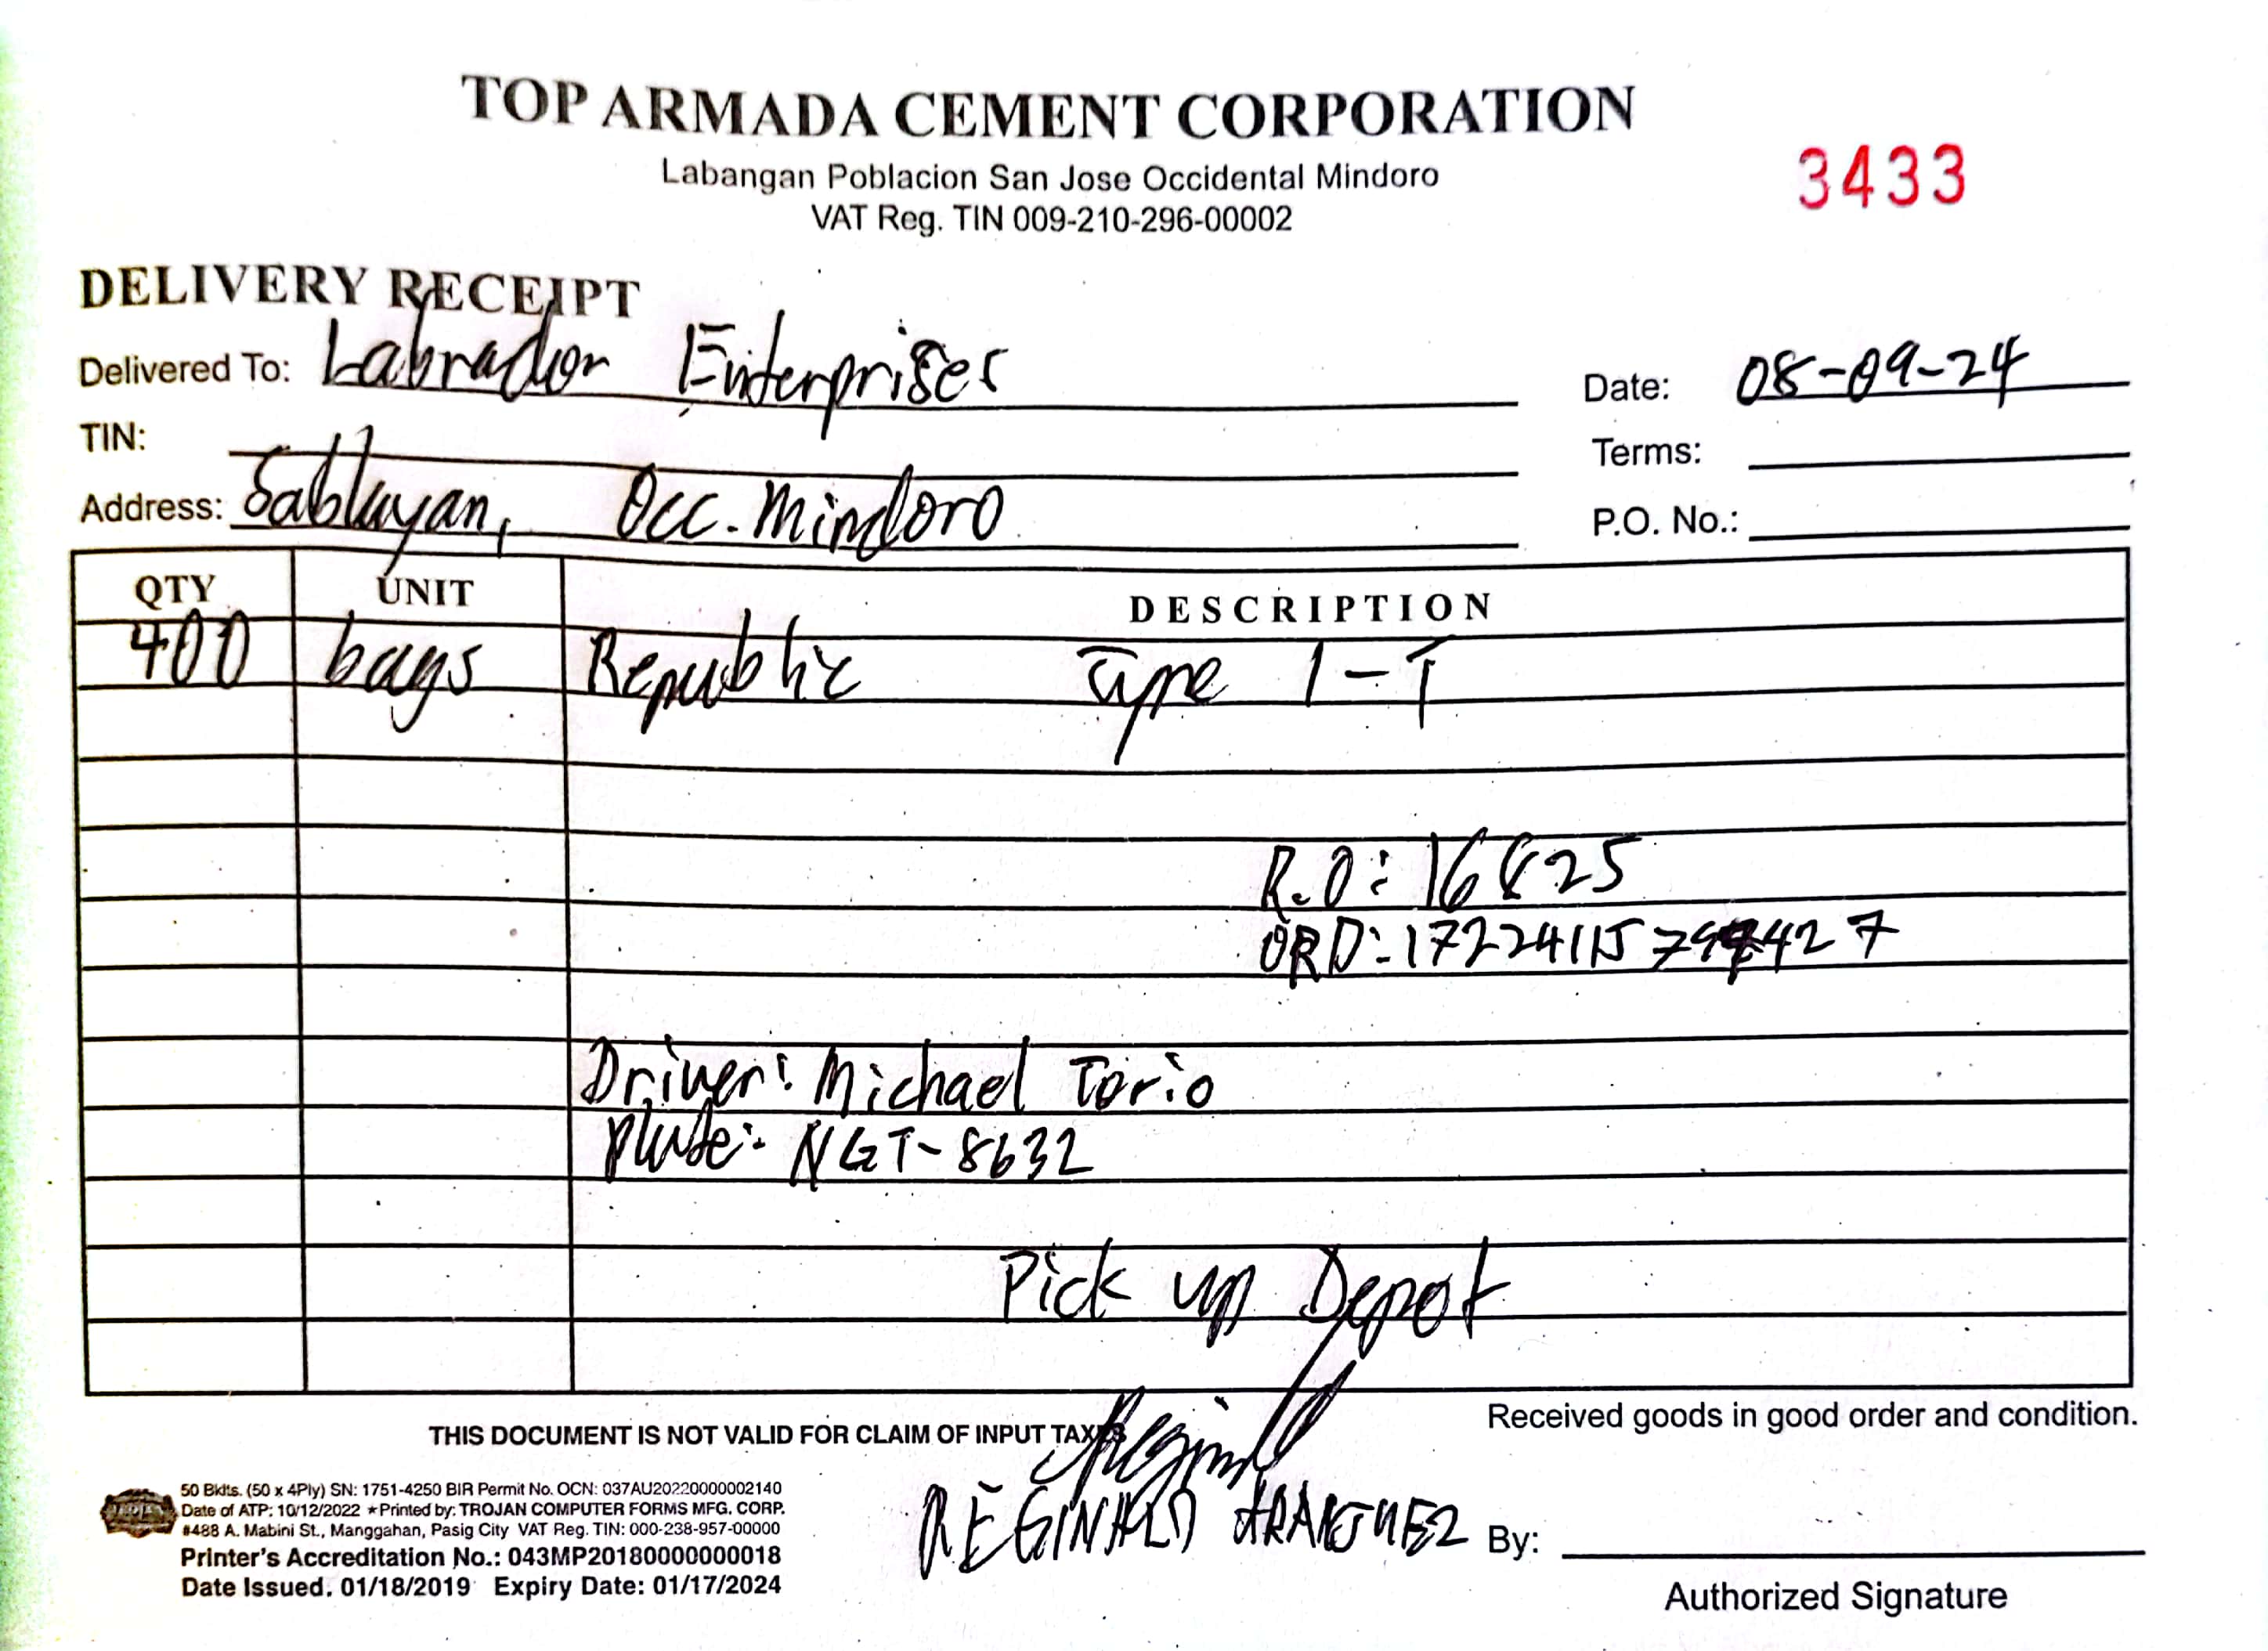 TOP ARMADA CEMENT CORPORATION
Labangan Poblacion San Jose Occidental Mindoro
VAT Reg. TIN 009-210-296-00002
3433
DELIVERY RECEIPT
Delivered To: Labrador Enterprises
Date: 08-09-24
TIN:
Terms:
Address: Sablayan, Occ. Mindoro
P.O. No.:
QTY UNIT DESCRIPTION
400 bags Republic Type 1-T
R.O: 16825
ORD: 172241157
Driver: Michael Torio
Plate: NGT-8632
Pick up Depot
THIS DOCUMENT IS NOT VALID FOR CLAIM OF INPUT TAXES
Received goods in good order and condition.
50 Bklts. (50 x 4Ply) SN: 1751-4250 BIR Permit No. OCN: 037AU20220000002140
Date of ATP: 10/12/2022 ★Printed by: TROJAN COMPUTER FORMS MFG. CORP.
#488 A. Mabini St., Manggahan, Pasig City VAT Reg. TIN: 000-238-957-00000
Printer's Accreditation No.: 043MP20180000000018
Date Issued. 01/18/2019 Expiry Date: 01/17/2024
REGINALD ARANJUEZ
By:
Authorized Signature